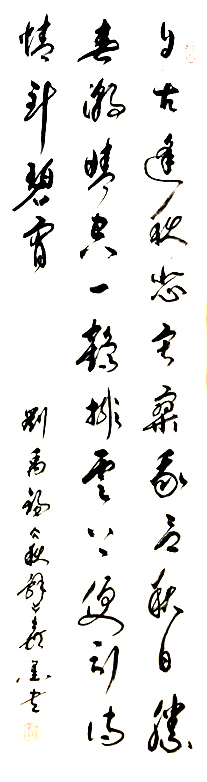 自古逢秋悲寂寥我言秋日勝
春朝晴空一鶴排雲上便引詩
情到碧霄
劉禹錫秋辭